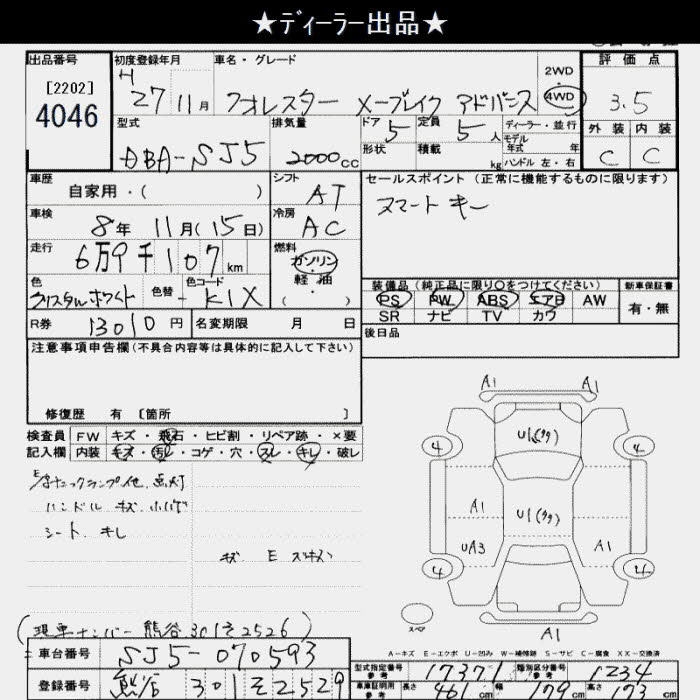 ★ディーラー出品★
出品番号 初度登録年月 車名・グレード 評価点
[2202]
4046
H
27 11 月 フォレスター メーブレイク アドバンス 2WD ・ 4WD 3.5
型式 排気量 ドア 定員 ディーラー・並行 外装 内装
DBA-SJ5 2000 cc 5 5 人 モデル年式 年
形状 積載 kg ハンドル 左・右 C C
車歴 シフト セールスポイント(正常に機能するものに限ります)
自家用・( ) AT スマート キー
車検 冷房
8年 11月(15日) AC
走行 燃料
6万9千107 km ガソリン
・
軽油
( )
色 色替 色コード 装備品(純正品に限り○をつけてください) 新車保証書
クリスタルホワイト - K1X PS PW ABS エアB AW 有・無
SR ナビ TV カワ
R券 13010 円 名変期限 月 日 後日品
注意事項申告欄(不具合内容等は具体的に記入して下さい)
修復歴 有 [箇所 ]
検査員 FW キズ・飛石・ヒビ割・リペア跡・×要
記入欄 内装 キズ・汚れ・コゲ・穴・スレ・キレ・破レ
ランプ他 点灯
ハンドル キズ
シート キレ
キズ E
A1 A1
U1
4 4
A1 U1
UA3 A1
4 4
スペア
A1
A-キズ E-エクボ U-凹み W-補修跡 S-サビ C-腐食 XX-交換済
(現車ナンバー 熊谷 301そ2526)
車台番号 SJ5-070593
登録番号 熊谷 301そ2529
型式指定番号 参考 17371 類別区分番号 参考 1234
車庫証明用 参考 長さ 461 cm 幅 179 cm 高さ 173 cm